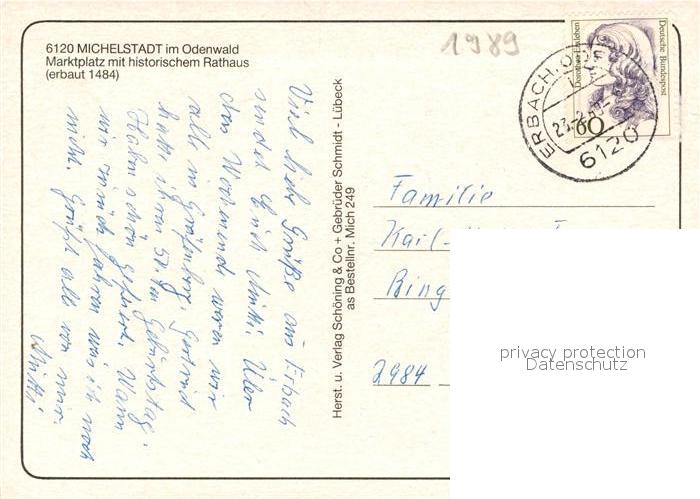 6120 MICHELSTADT im Odenwald
Marktplatz mit historischem Rathaus
(erbaut 1484)
1989
Dorothea Erxleben
Deutsche Bundespost
60
ERBACH, O
23.-2.
6120
Viele liebe Grüße aus Erbach
sendet Euch Mutti. Über
das Wochenend waren wir
alle in Gräfenberg, Gertrud
hatte ihren 50. Geburtstag.
Haben schön gefeiert. Wann
wir zurück fahren weis ich noch
nicht. Grüßt alle von mir.
Mutti
Herst. u. Verlag Schöning & Co + Gebrüder Schmidt - Lübeck
as Bestellnr. Mich 249
Familie
Karl-
Ring
2984
privacy protection
Datenschutz